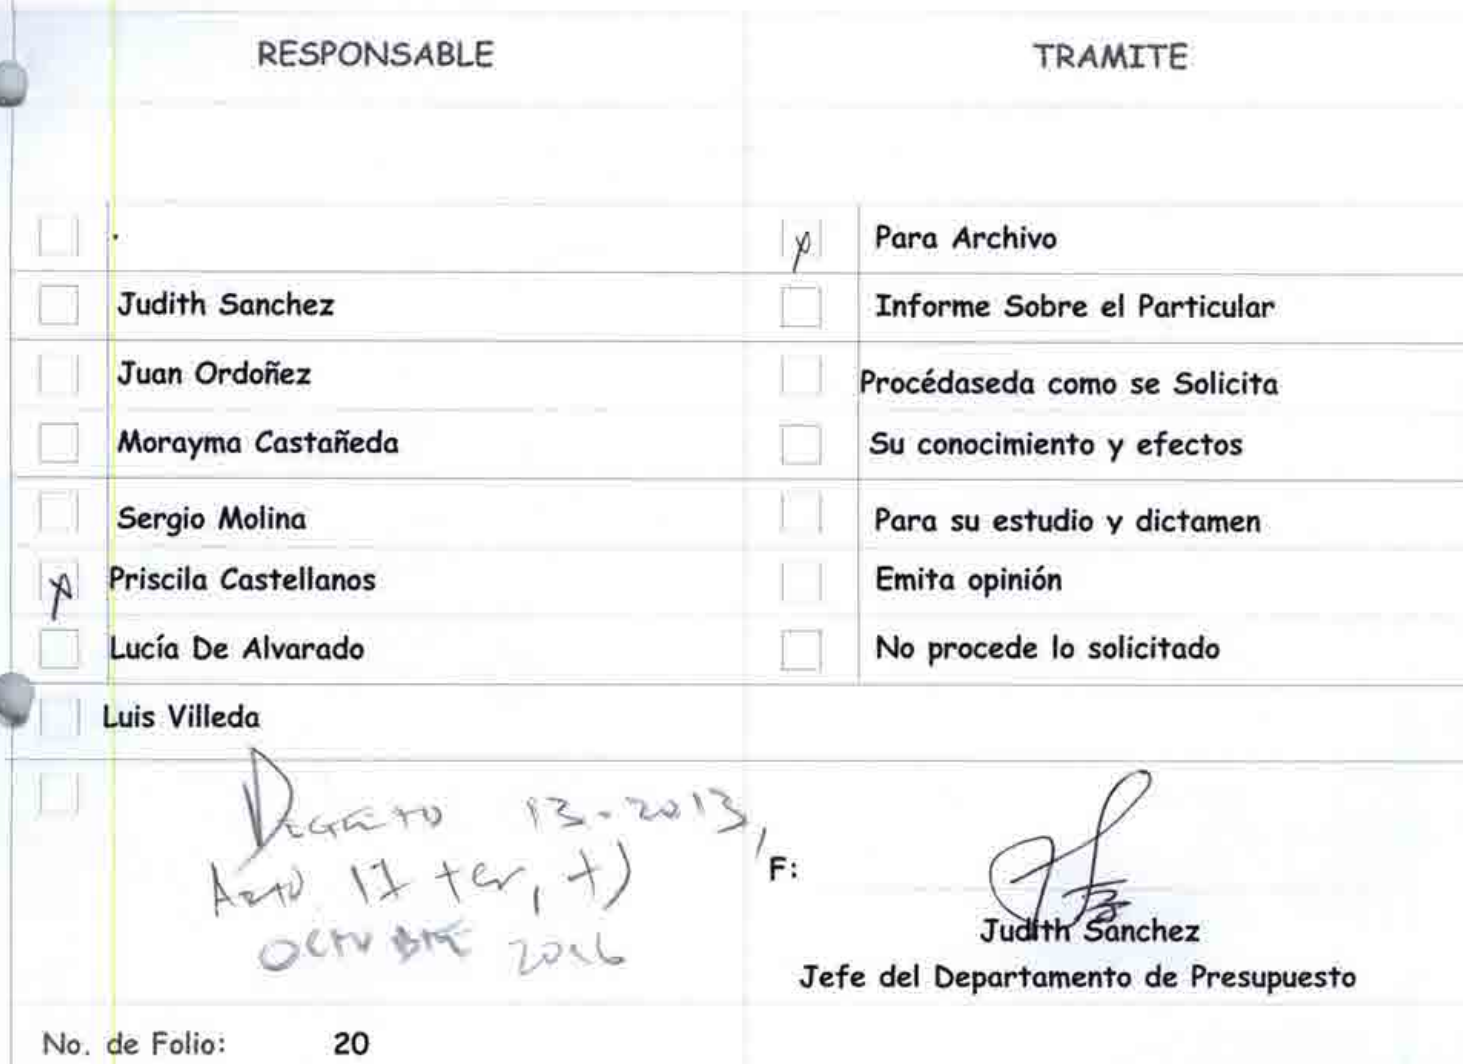 RESPONSABLE TRAMITE
. Para Archivo
Judith Sanchez Informe Sobre el Particular
Juan Ordoñez Procédaseda como se Solicita
Morayma Castañeda Su conocimiento y efectos
Sergio Molina Para su estudio y dictamen
Priscila Castellanos Emita opinión
Lucía De Alvarado No procede lo solicitado
Luis Villeda
Decreto 13-2013,
17 ter,
OCTUBRE 2016
F:
Judith Sanchez
Jefe del Departamento de Presupuesto
No. de Folio: 20